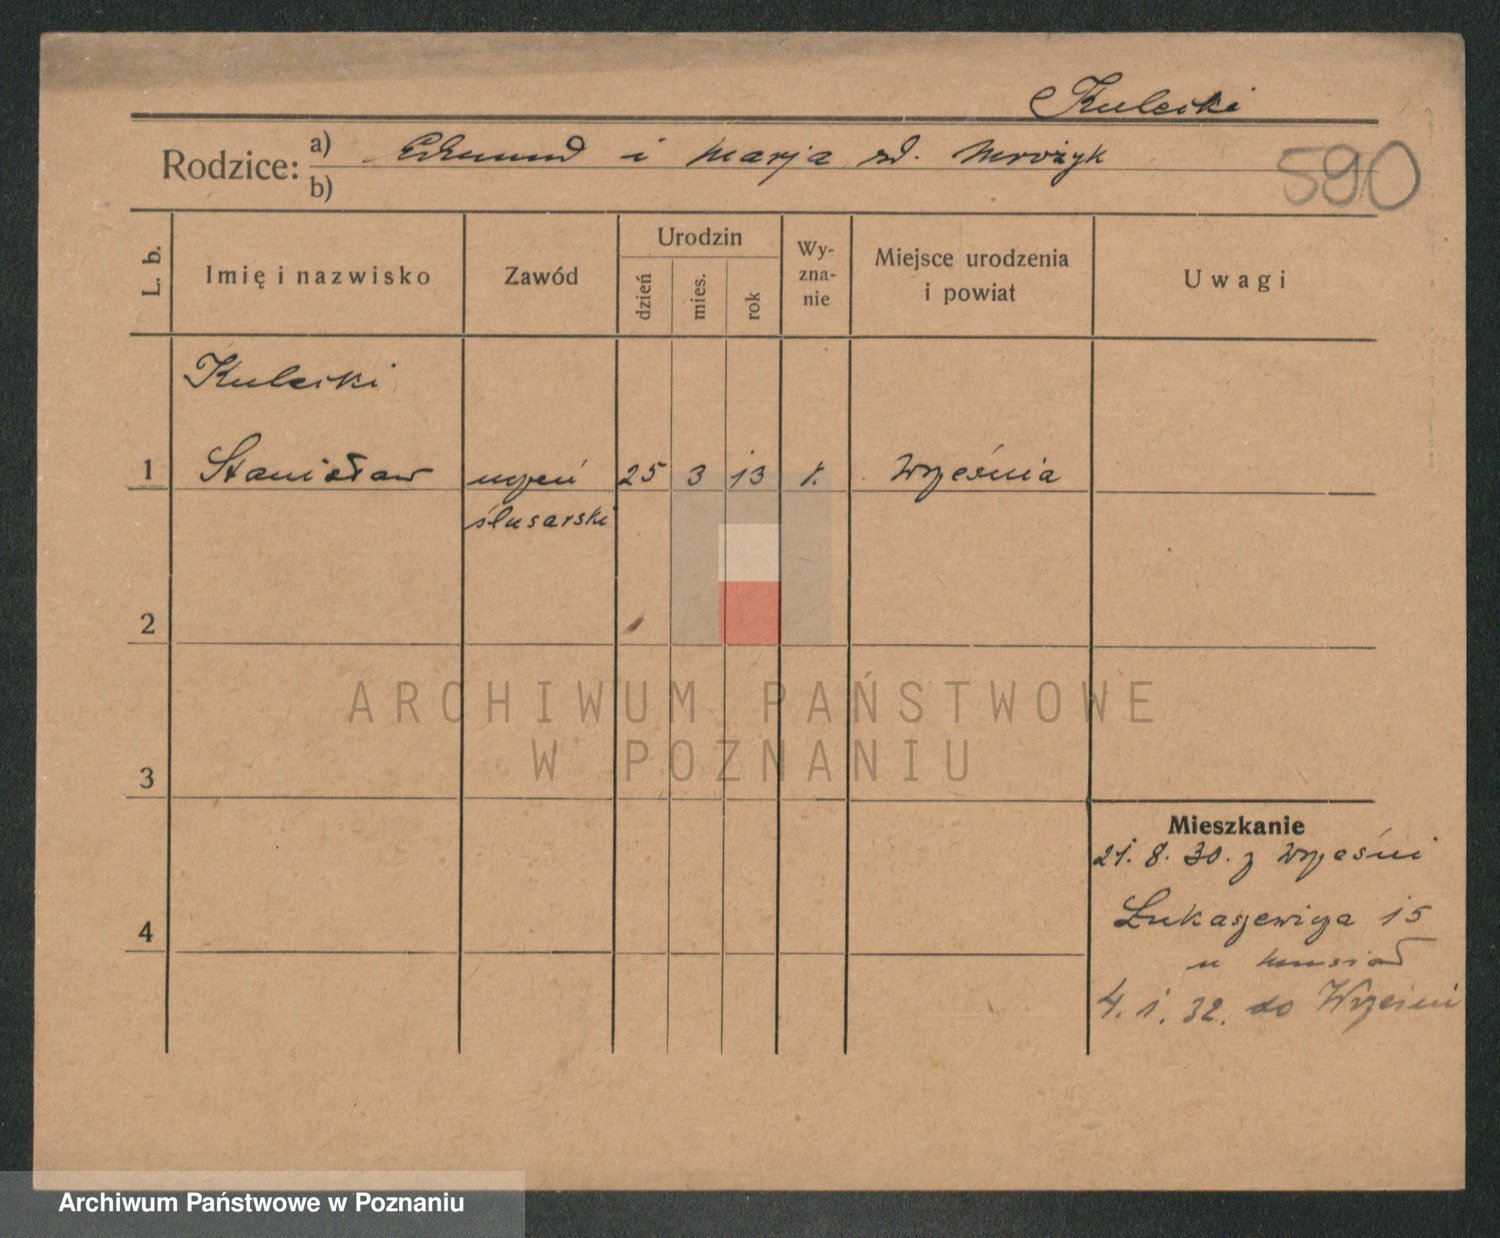 Kulecki
Rodzice: a) Edmund i Marja zd. Mrożyk
b)
590
L. b.
Imię i nazwisko
Zawód
Urodzin
dzień
mies.
rok
Wy-
zna-
nie
Miejsce urodzenia
i powiat
Uwagi
Kulecki
1 Stanisław uczeń 25 3 13 r. Września
ślusarski
2
3
4
Mieszkanie
21. 8. 30. z Wrześni
Łukaszewicza 15
u
4. 1. 32. do Wrześni
ARCHIWUM PAŃSTWOWE
W POZNANIU
Archiwum Państwowe w Poznaniu